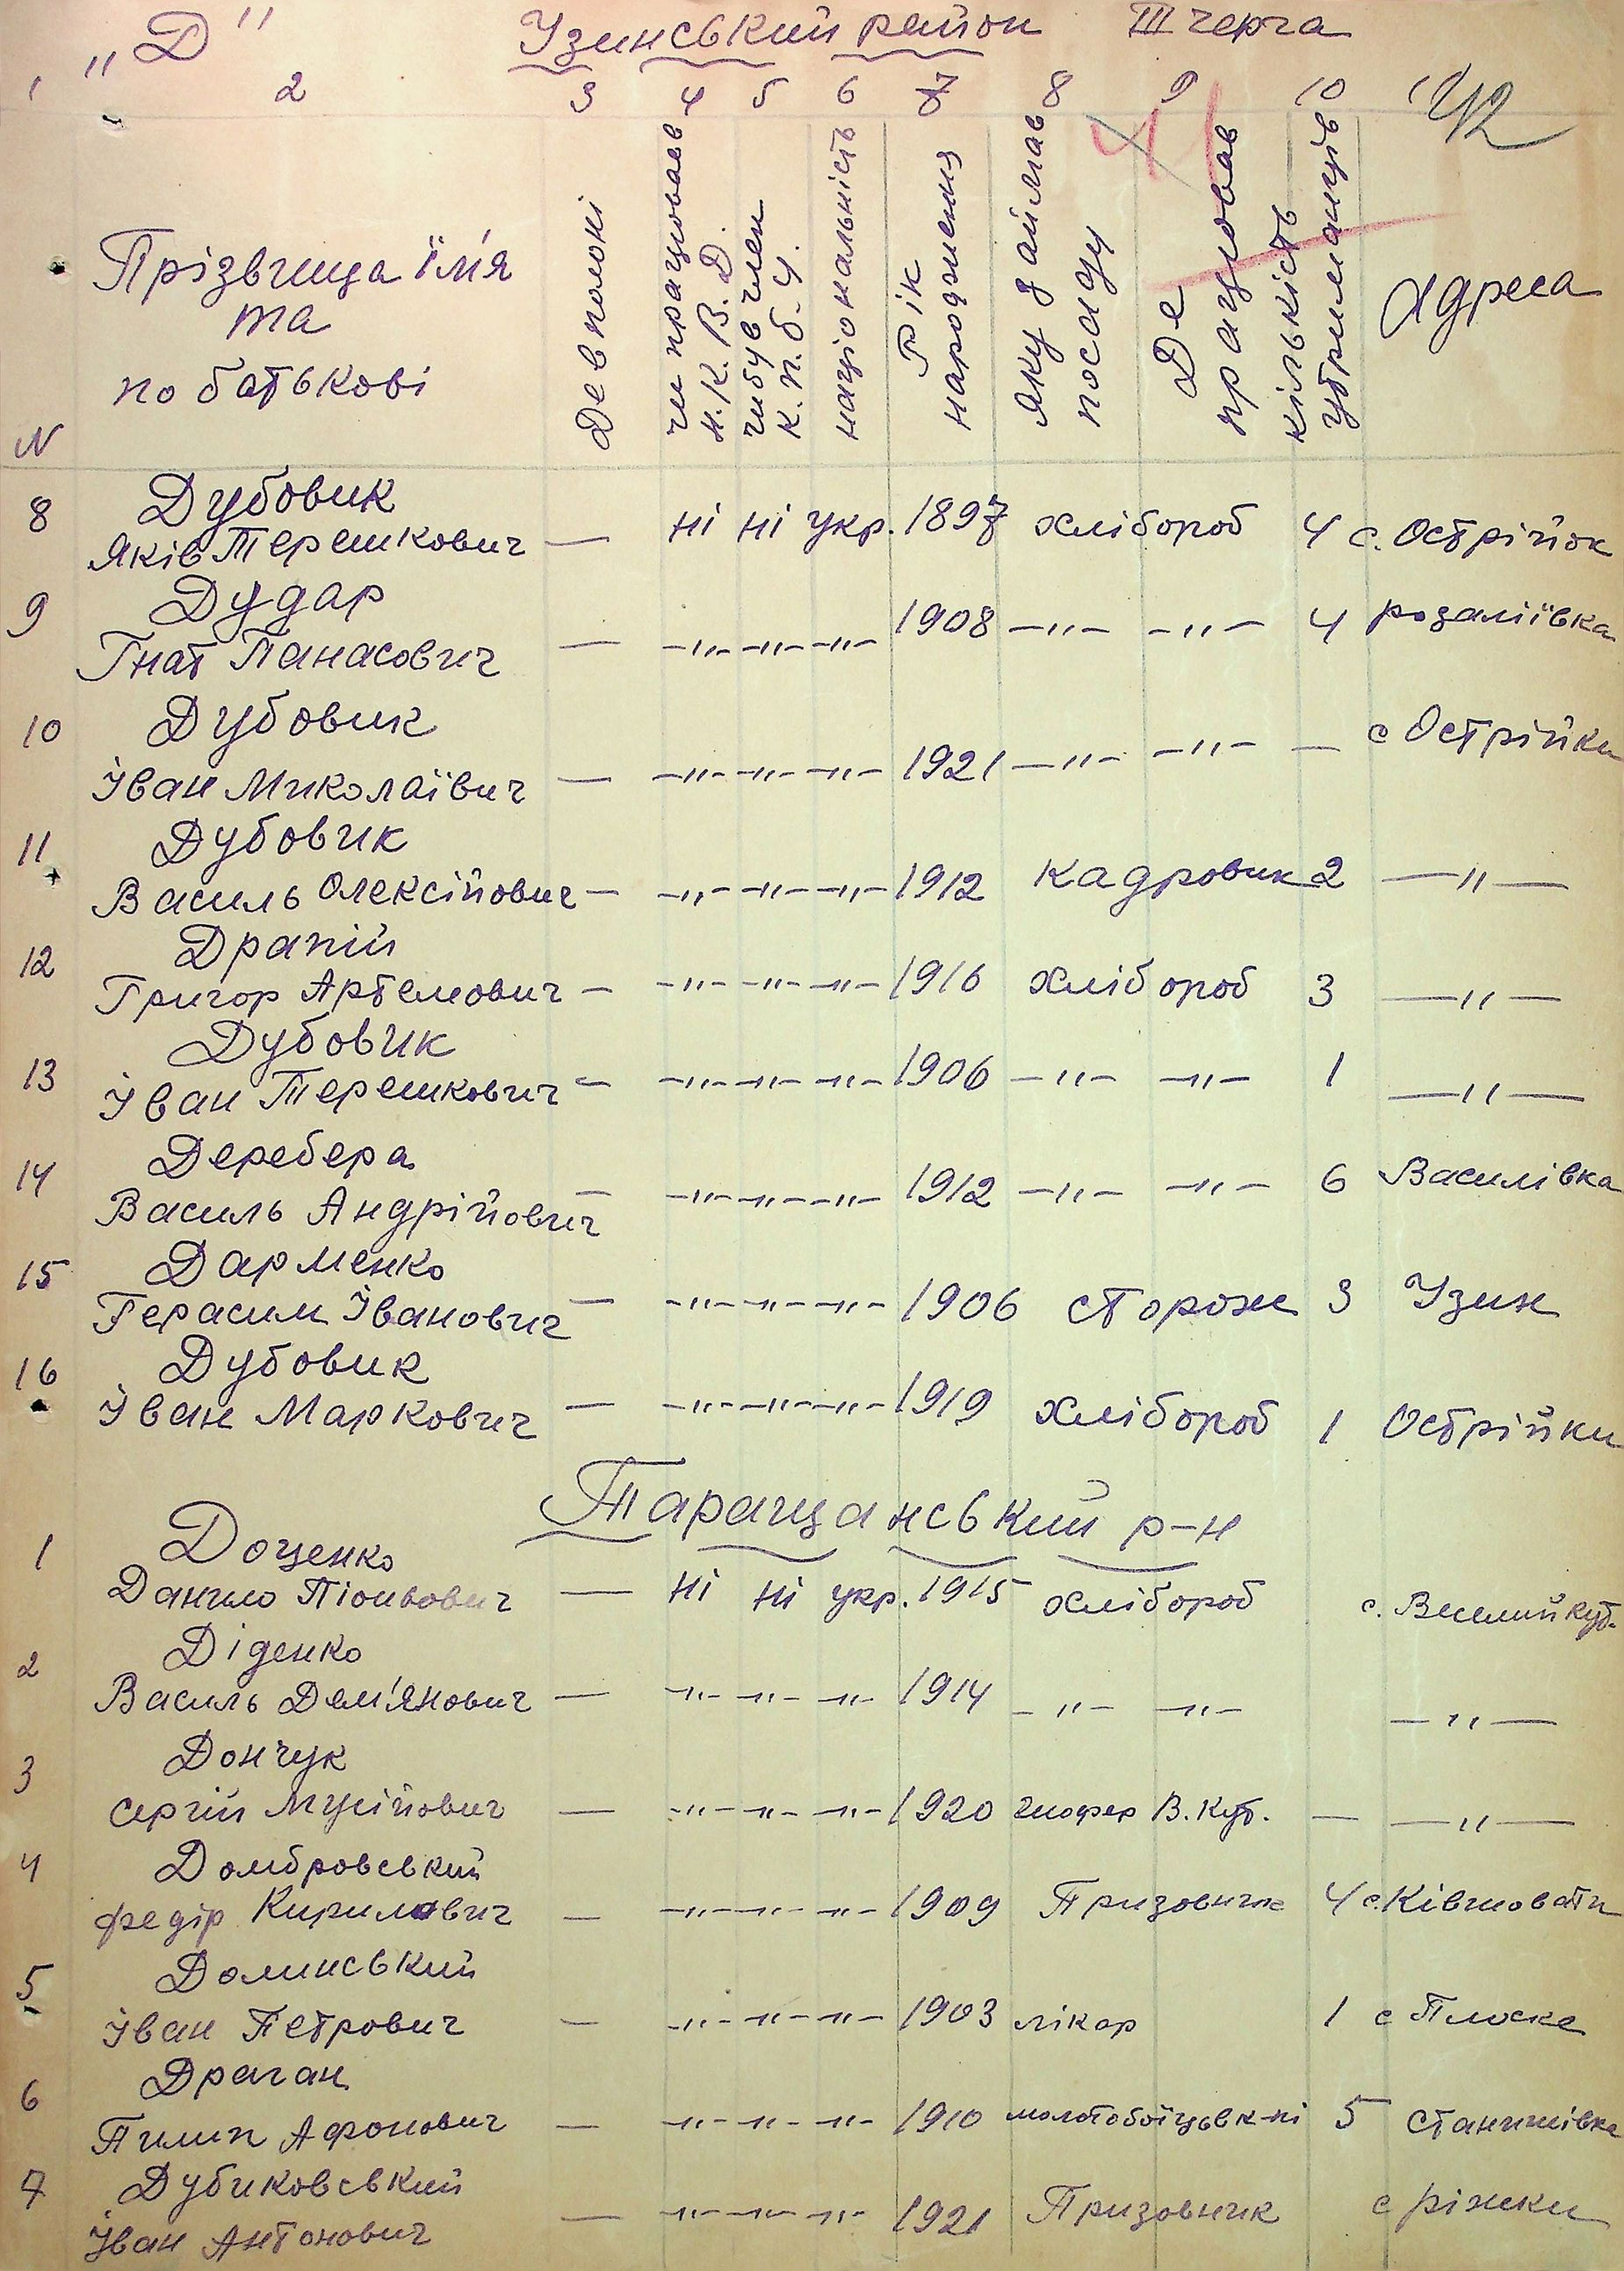 "Д" Узинський район ІІІ черга
1 2 3 4 5 6 7 8 9 10 11 42
N Прізвища ім'я
та
по батькові
Де в полоні
чи працював
Н.К.В.Д.
чи був член
К.П.б.У.
національність
Рік
народження
Яку займав
посаду
Де
працював
кількість
утриманців
Адреса
8 Дубовик
Яків Терешкович — ні ні укр. 1897 хлібороб 4 с. Острійок
9 Дудар
Гнат Панасович — —"— —"— —"— 1908 —"— —"— 4 Розаліївка
10 Дубовик
Іван Миколаївич — —"— —"— —"— 1921 —"— —"— — с Острійки
11 Дубовик
Василь Олексійович — —"— —"— —"— 1912 кадровик 2 —"—
12 Драпій
Григор Артемович — —"— —"— —"— 1916 хлібороб 3 —"—
13 Дубовик
Іван Терешкович — —"— —"— —"— 1906 —"— —"— 1 —"—
14 Деребера
Василь Андрійович — —"— —"— —"— 1912 —"— —"— 6 Василівка
15 Дарменко
Герасим Іванович — —"— —"— —"— 1906 сторож 3 Узин
16 Дубовик
Іван Маркович — —"— —"— —"— 1919 хлібороб 1 Острійки
Таращанський р-н
1 Доценко
Данило — ні ні укр. 1915 хлібороб с. Веселий кут.
2 Діденко
Василь Дем'янович — —"— —"— —"— 1914 —"— —"— —"—
3 Дончук
Сергій Мусійович — —"— —"— —"— 1920 шофер В. Кут. — —"—
4 Домбровський
Федір Кирилович — —"— —"— —"— 1909 Призовник 4 с. Ківшовати
5 Долинський
Іван Петрович — —"— —"— —"— 1903 лікар 1 с Плоске
6 Драган
Пилип Афонович — —"— —"— —"— 1910 молотобоїць в к-ні 5 Станишівка
7 Дубиковський
Іван Антонович — —"— —"— —"— 1921 Призовник с Ріжки